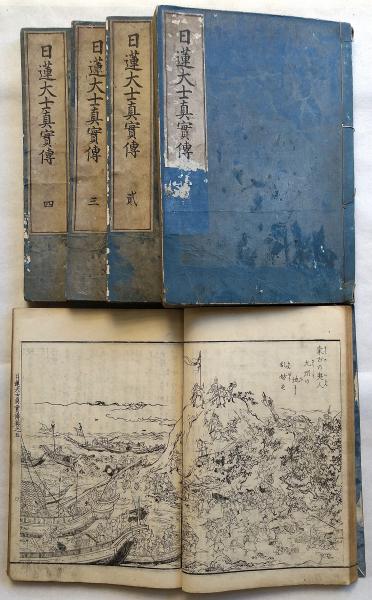 日蓮大士真實傳
四
日蓮大士真實傳
三
日蓮大士真實傳
貳
日蓮大士真實傳
日蓮大士真實傳巻之五